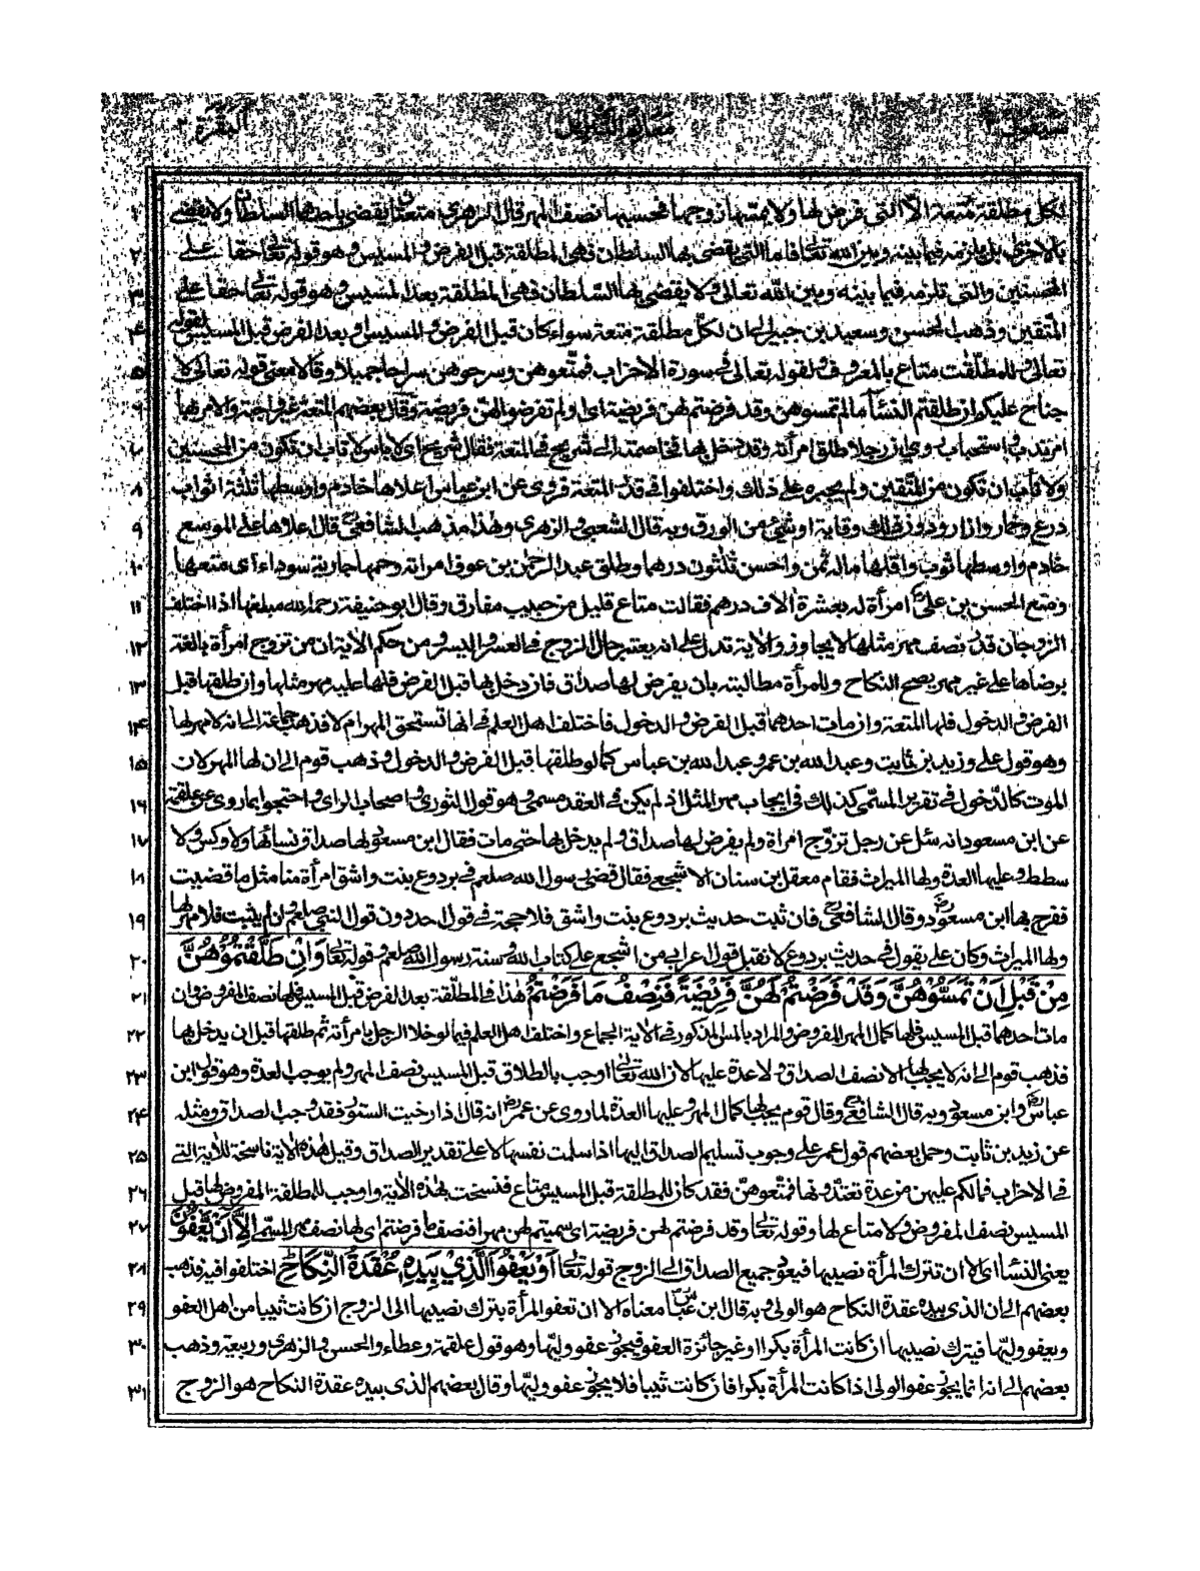 سيقول ٢ معالم التنزيل البقرة ٢
لكل مطلقة متعة الا التى فرض لها ولم يمسها زوجها فحسبها نصف المهر قال الزهرى متعتان يقضى باحدهما السلطان ولا يقضى ١
بالاخرى بل يلزمه فيما بينه وبين الله تعالى فاما التى يقضى بها السلطان فهى المطلقة قبل الفرض والمسيس وهو قوله تعالى حقا على ٢
المحسنين والتى تلزمه فيما بينه وبين الله تعالى ولا يقضى بها السلطان فهى المطلقة بعد المسيس وهو قوله تعالى حقا على ٣
المتقين وذهب الحسن وسعيد بن جبير الى ان لكل مطلقة متعة سواء كان قبل الفرض والمسيس او بعد الفرض قبل المسيس لقوله ۴
تعالى وللمطلقت متاع بالمعروف ولقوله تعالى فى سورة الاحزاب فمتعوهن وسرحوهن سراحا جميلا وقالا معنى قوله تعالى لا ۵
جناح عليكم ان طلقتم النسآء ما لم تمسوهن وقد فرضتم لهن فريضة اى ولم تفرضوا لهن فريضة وقال بعضهم المتعة غير واجبة والامر بها ٦
امر ندب واستحباب وروى ان رجلا طلق امرأته وقد دخل بها فخاصمته الى شريح فى المتعة فقال شريح اى لا تاب ان تكون من المحسنين ٧
ولا تاب ان تكون من المتقين ولم يجبره على ذلك واختلفوا فى قدر المتعة فروى عن ابن عباس اعلاها خادم واوسطها ثلثة اثواب ٨
درع وخمار وازار ودون ذلك وقاية او شئ من الورق وبه قال الشعبى والزهرى وهذا مذهب الشافعى قال اعلاها على الموسع ٩
خادم واوسطها ثوب واقلها ماله ثمن واحسن ثلثون درهما وطلق عبد الرحمن بن عوف امراته وحممها جارية سوداء اى متعها ١٠
ومتع الحسن بن على امرأة له بعشرة الاف درهم فقالت متاع قليل من حبيب مفارق وقال ابو حنيفة رحمه الله مبلغها اذا اختلف ١١
الزوجان قدر نصف مهر مثلها لا يجاوز والاية تدل على انه يعتبر حال الزوج فى العسر واليسر ومن حكم الاية ان من تزوج امرأة بالغة ١٢
برضاها على غير مهر يصح النكاح وللمرأة مطالبته بان يفرض لها صداق فان دخل بها قبل الفرض فلها عليه مهر مثلها وان طلقها قبل ١٣
الفرض والدخول فلها المتعة وان مات احدهما قبل الفرض والدخول فاختلف اهل العلم فى انها تستحق المهر ام لا فذهب جماعة الى انه لا مهر لها ١۴
وهو قول على وزيد بن ثابت وعبد الله بن عمر وعبد الله بن عباس كما لو طلقها قبل الفرض والدخول وذهب قوم الى ان لها المهر لان ١۵
الموت كالدخول فى تقرير المسمى كذلك فى ايجاب مهر المثل اذ لم يكن فى العقد مسمى وهو قول الثورى واصحاب الراى واحتجوا بما روى عن علقمة ١٦
عن ابن مسعود انه سئل عن رجل تزوج امراة ولم يفرض لها صداق ولم يدخل بها حتى مات فقال ابن مسعود لها صداق نسائها ولا وكس ولا ١٧
سطط وعليها العدة ولها الميراث فقام معقل بن سنان الاشجعى فقال قضى رسول الله صلعم فى بردوع بنت واشق امرأة منا مثل ما قضيت ١٨
ففرح بها ابن مسعود وقال الشافعى فان ثبت حديث بردوع بنت واشق فلا حجة فى قول احد دون قول النبى صلعم وان لم يثبت فلا مهر لها ١٩
ولها الميراث وكان على يقول فى حديث بردوع لا نقبل قول اعرابى من اشجع على كتاب الله وسنة رسول الله صلعم قوله تعالى وَاِنْ طَلَّقْتُمُوْهُنَّ ٢٠
مِنْ قَبْلِ اَنْ تَمَسُّوْهُنَّ وَقَدْ فَرَضْتُمْ لَهُنَّ فَرِيْضَةً فَنِصْفُ مَا فَرَضْتُمْ هذا فى المطلقة بعد الفرض قبل المسيس فلها نصف المفروض وان ٢١
مات احدهما قبل المسيس فلها كمال المهر المفروض والمراد بالمس المذكور فى الاية الجماع واختلف اهل العلم فيما لو خلا الرجل بامرأته ثم طلقها قبل ان يدخل بها ٢٢
فذهب قوم الى انه لا يجب لها الا نصف الصداق ولا عدة عليها لان الله تعالى اوجب بالطلاق قبل المسيس نصف المهر ولم يوجب العدة وهو قول ابن ٢٣
عباس وابن مسعود وبه قال الشافعى وقال قوم يجب لها كمال المهر وعليها العدة لما روى عن عمر انه قال اذا رخيت الستور فقد وجب الصداق ومثله ٢۴
عن زيد بن ثابت وحمل بعضهم قول عمر على وجوب تسليم الصداق اليها اذا سلمت نفسها لا على تقدير الصداق وقيل هذه الاية ناسخة للاية التى ٢۵
فى الاحزاب فمالكم عليهن من عدة تعتدونها فمتعوهن فقد كان للمطلقة قبل المسيس متاع فنسخت بهذه الاية واوجب للمطلقة المفروض لها قبل ٢٦
المسيس نصف المفروض ولا متاع لها وقوله تعالى وقد فرضتم لهن فريضة اى سميتم لهن مهرا فنصف ما فرضتم اى لها نصف مهر المسمى اِلَّا اَنْ يَّعْفُوْنَ ٢٧
يعنى النسآء اى الا ان تترك المرأة نصيبها فيعود جميع الصداق الى الزوج قوله تعالى اَوْ يَعْفُوَا الَّذِيْ بِيَدِهٖ عُقْدَةُ النِّكَاحِ اختلفوا فيه فذهب ٢٨
بعضهم الى ان الذى بيده عقدة النكاح هو الولى وبه قال ابن عباس معناه الا ان تعفو المرأة بترك نصيبها الى الزوج ان كانت ثيبا من اهل العفو ٢٩
ويعفو وليها فيترك نصيبها ان كانت المرأة بكرا او غير جائزة العفو فيجوز عفو وليها وهو قول علقمة وعطاء والحسن والزهرى وربيعة وذهب ٣٠
بعضهم الى انه انما يجوز عفو الولى اذا كانت المرأة بكرا فان كانت ثيبا فلا يجوز عفو وليها وقال بعضهم الذى بيده عقدة النكاح هو الزوج ٣١